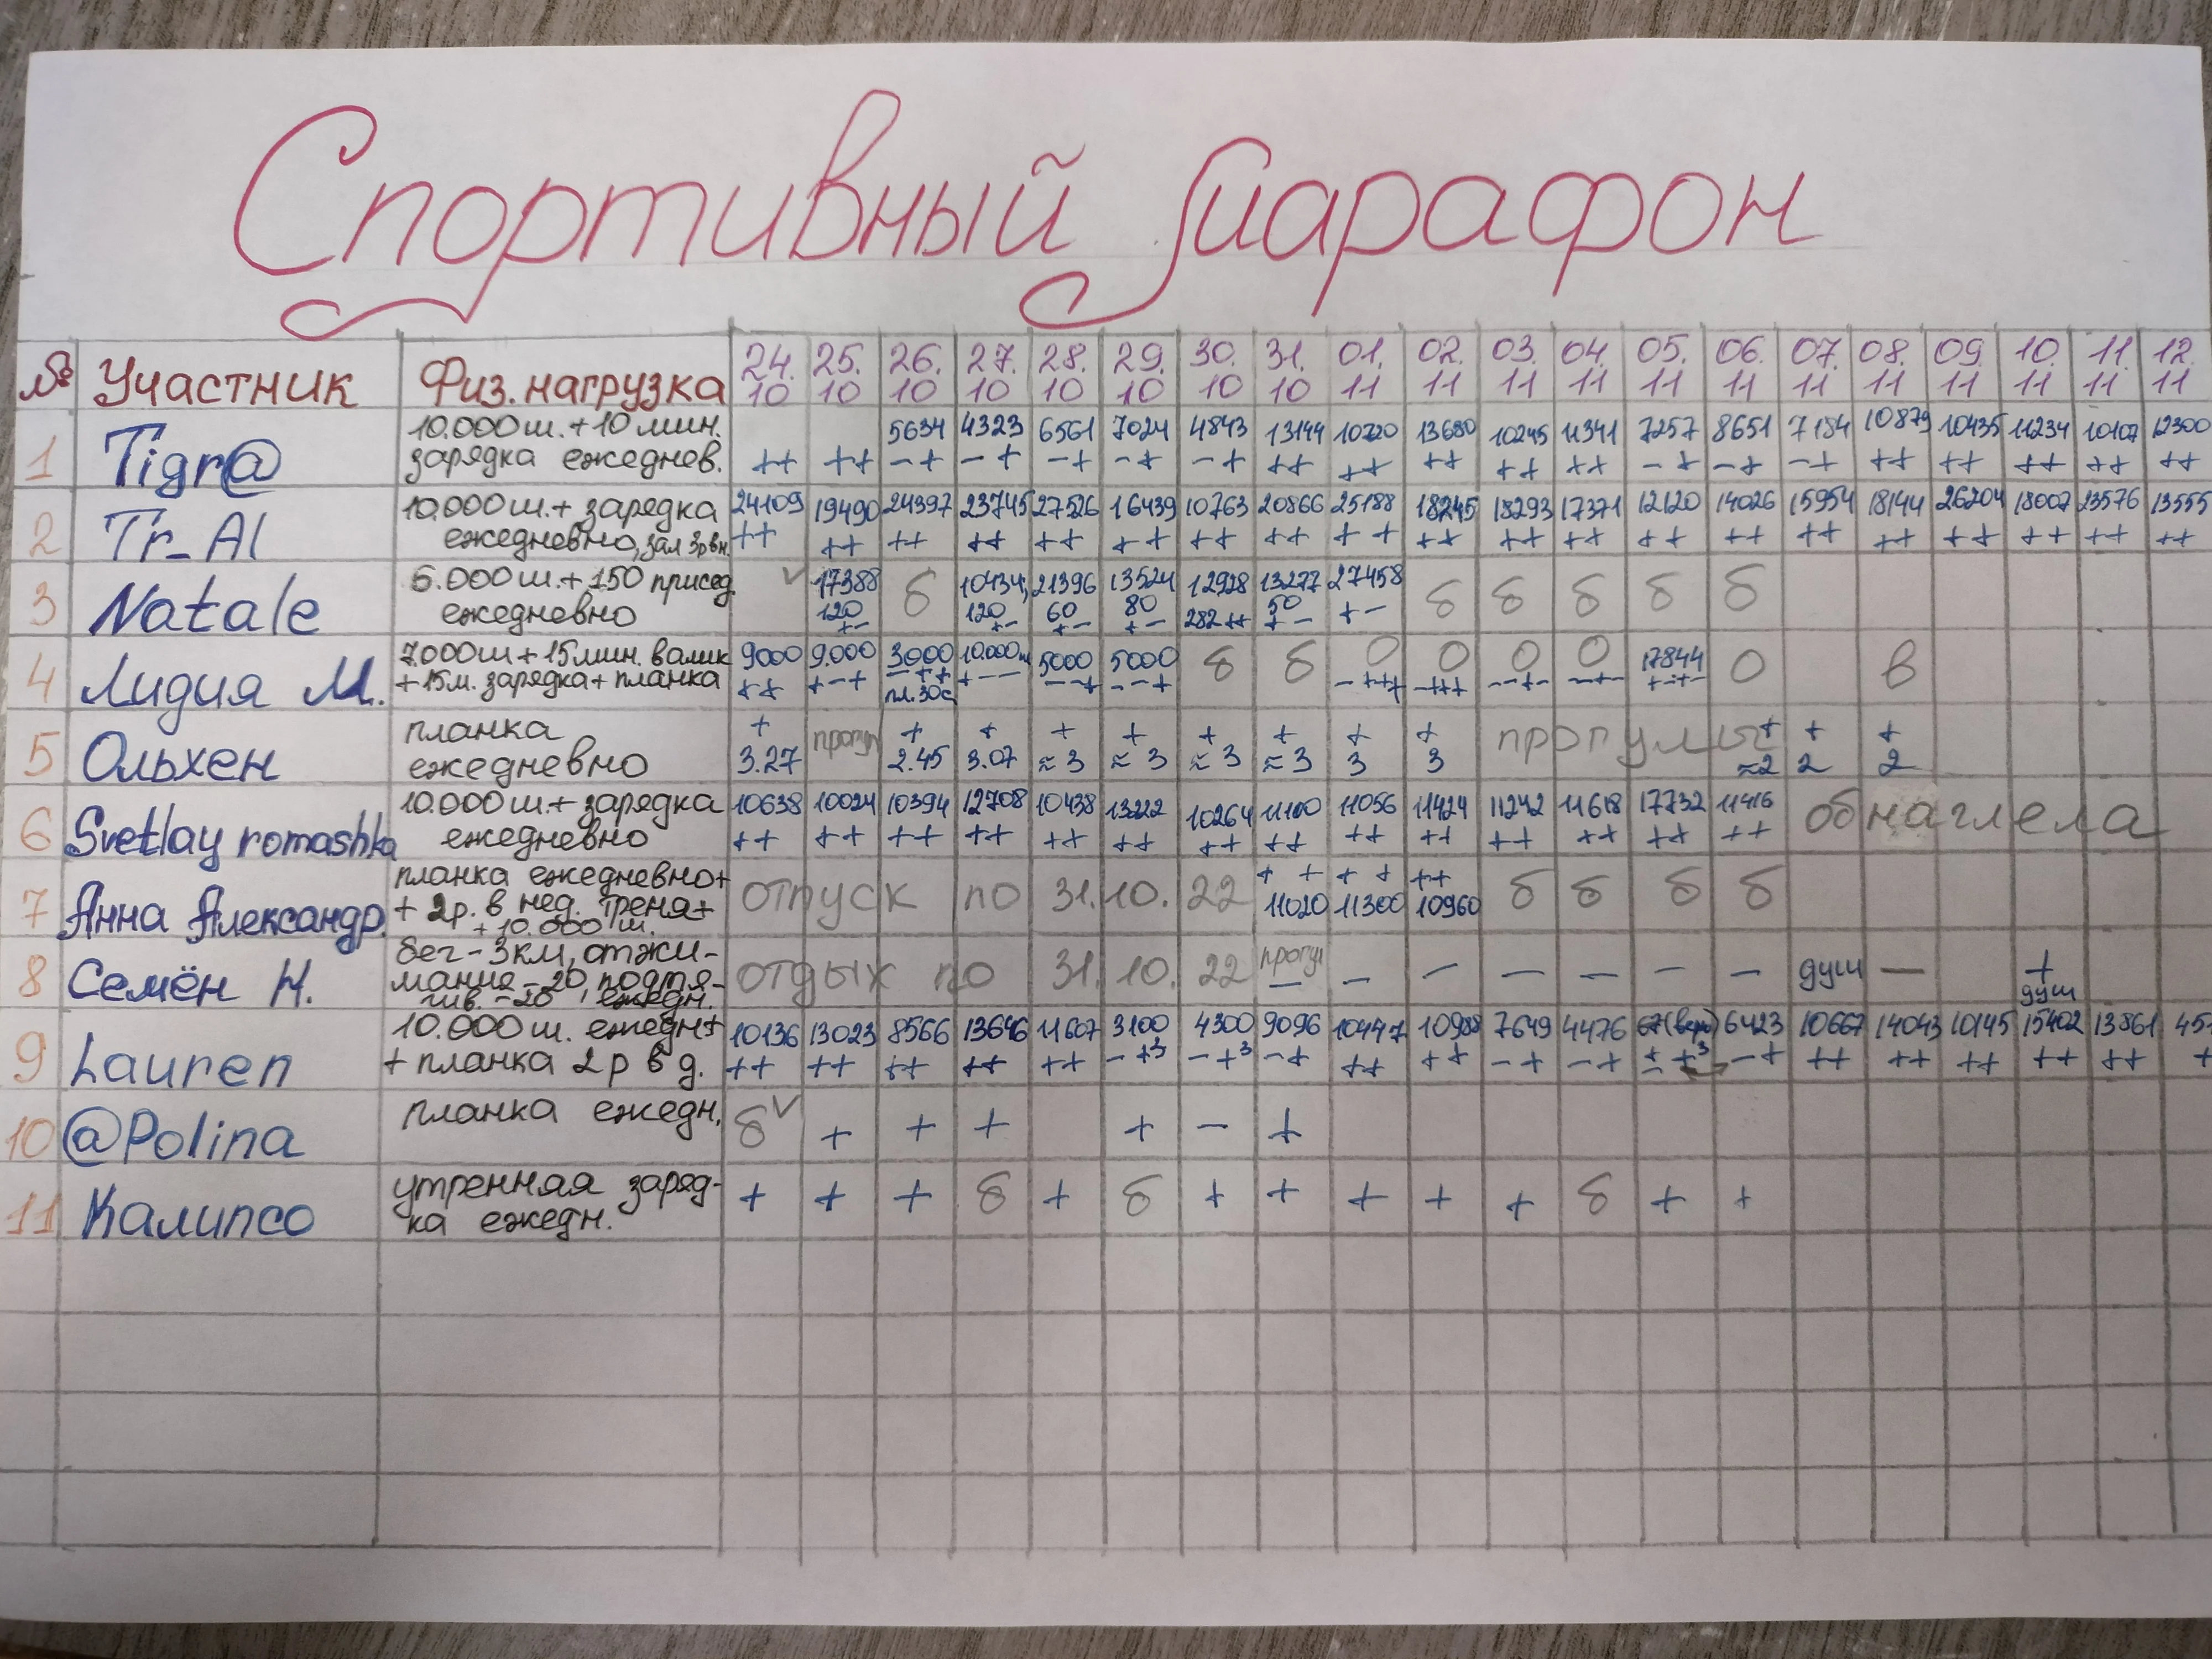 Спортивный Марафон
№ Участник Физ. нагрузка 24.10 25.10 26.10 27.10 28.10 29.10 30.10 31.10 01.11 02.11 03.11 04.11 05.11 06.11 07.11 08.11 09.11 10.11 11.11 12.11
1 Tigr@ 10.000 ш. + 10 мин.
зарядка ежеднев.
5634 4323 6561 7024 4843 13144 10720 13680 10245 11341 7257 8651 7184 10879 10435 11234 10107 12300
++ ++ -+ -+ -+ -+ -+ ++ ++ ++ ++ ++ -+ -+ -+ ++ ++ ++ ++ ++
2 Tr_Al 10.000 ш. + зарядка
ежедневно, зал 3р в н.
24109 19490 24397 23745 27526 16439 10763 20866 25188 18245 18293 17371 12120 14026 15954 18144 26204 18007 23576 13555
++ ++ ++ ++ ++ ++ ++ ++ ++ ++ ++ ++ ++ ++ ++ ++ ++ ++ ++ ++
3 Natale 6.000 ш. + 150 присед.
ежедневно
17388 б 10434, 21396 13524 12928 13277 27458 б б б б б
120 120 60 80 282 ++ 50 +-
+- +- +- +- +-
4 Лидия М. 7.000 ш + 15 мин. валик
+ 15 м. зарядка + планка
9000 9.000 3000 10.000 ш 5000 5000 б б 0 0 0 0 17844 0 в
++ +-+ -++ +-- --+ --+ -+++ -+++ --+- --+- +-+-
пл. 30с
5 Ольхен планка
ежедневно
+ прогул + + + + + + + + прогулы + + +
3.27 2.45 3.07 ≈3 ≈3 ≈3 ≈3 3 3 ≈2 2 2
6 Svetlay romashka 10.000 ш. + зарядка
ежедневно
10638 10024 10394 12708 10438 13222 10264 11100 11056 11424 11242 11618 17732 11416 обнаглела
++ ++ ++ ++ ++ ++ ++ ++ ++ ++ ++ ++ ++ ++
7 Анна Александр. планка ежедневно +
+ 2р. в нед. треня +
+ 10.000 ш.
отпуск по 31.10.22 ++ ++ ++ б б б б
11020 11300 10960
8 Семён Н. бег - 3 км, отжи-
мания - 20, подтя-
гив. - 20, ежедн.
отдых по 31.10.22 прогул - - - - - - - душ - +
душ
9 Lauren 10.000 ш. ежедн +
+ планка 2 р в д.
10136 13023 8566 13646 11667 3100 4300 9096 10447 10988 7649 4476 67 6423 10667 14043 10145 15402 13861
++ ++ ++ ++ ++ -+3 -+3 -+ ++ ++ -+ -+ -+ ++ ++ ++ ++ ++
10 @Polina планка ежедн.
б + + + + - +
11 Калипсо утренняя заряд-
ка ежедн.
+ + + б + б + + + + + б + +